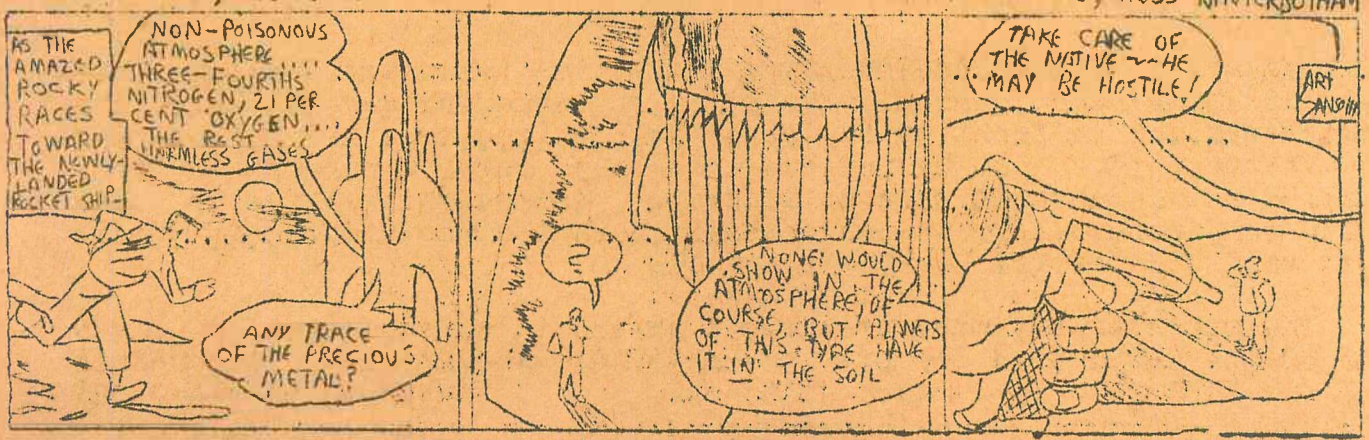 WINTERBOTHAM
AS THE
AMAZED
ROCKY
RACES
TOWARD
THE NEWLY-
LANDED
ROCKET SHIP-
NON-POISONOUS
ATMOSPHERE....
THREE-FOURTHS
NITROGEN, 21 PER
CENT OXYGEN....
THE REST
HARMLESS GASES
ANY TRACE
OF THE PRECIOUS
METAL?
?
NONE! WOULD
SHOW IN THE
ATMOSPHERE, OF
COURSE, BUT PLANETS
OF THIS TYPE HAVE
IT IN THE SOIL
TAKE CARE OF
THE NATIVE--HE
MAY BE HOSTILE!
ART
SANSOM